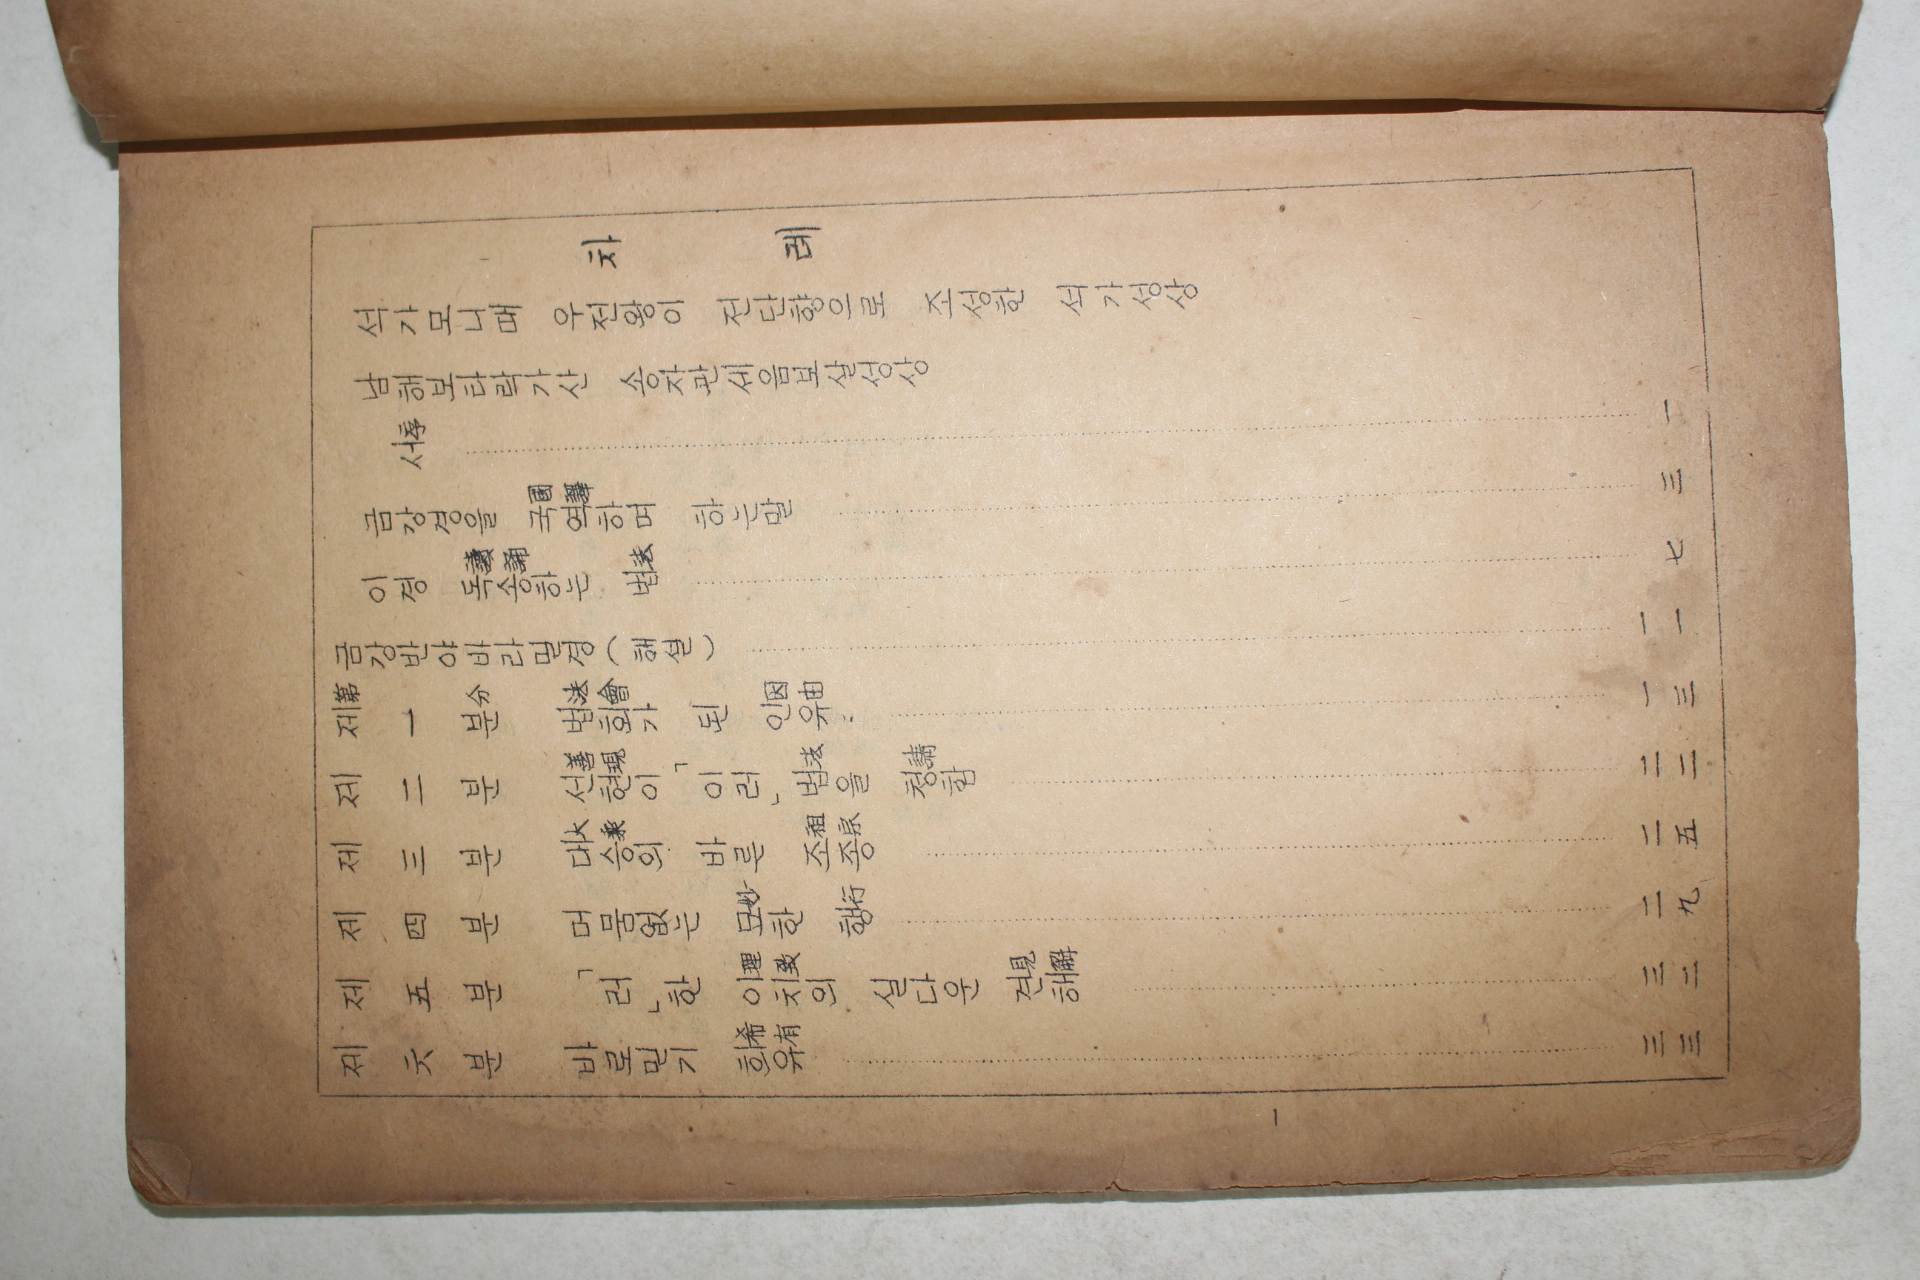 차 례
석가모니때 우전왕이 전단향으로 조성한 석가성상
남해보타락가산 송자관세음보살성상
서序 一
금강경을 국역國譯하며 하는말 三
이경 독송讀誦하는 법法 七
금강반야바라밀경(해설) 一一
제第一분分 법회法會가 된 인유因由 一三
제二분 선현善現이「이러」법法을 청請함 二二
제三분 대승大乘의 바른 조종祖宗 二五
제四분 머뭄없는 묘妙한 행行 二九
제五분 「러」한 이치理致의 실다운 견해見解 三二
제六분 바로믿기 희유希有 三三
一